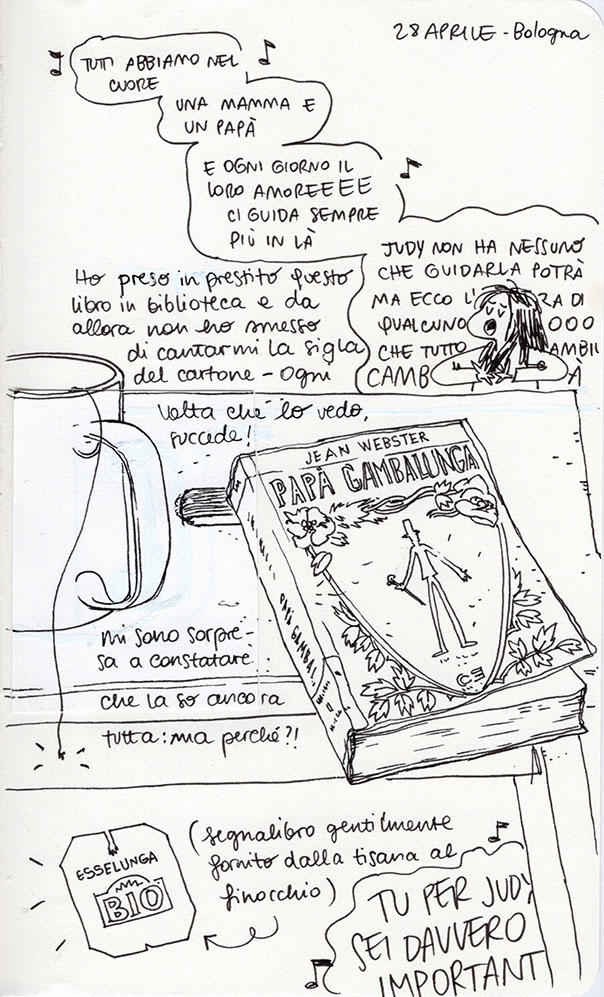 28 APRILE - Bologna
TUTTI ABBIAMO NEL
CUORE
UNA MAMMA E
UN PAPÀ
E OGNI GIORNO IL
LORO AMOREEEE
CI GUIDA SEMPRE
PIÙ IN LÀ
JUDY NON HA NESSUNO
CHE GUIDARLA POTRÀ
MA ECCO L' ZA DI
QUALCUNO OOO
CHE TUTTO AMBIL
CAMB À
Ho preso in prestito questo
libro in biblioteca e da
allora non ho smesso
di cantarmi la sigla
del cartone - ogni
volta che lo vedo,
succede!
JEAN WEBSTER
PAPÀ GAMBALUNGA
PAPÀ GAMBAL
CE
mi sono sorpre-
sa a constatare
che la so ancora
tutta: ma perché?!
ESSELUNGA
BIO
(segnalibro gentilmente
fornito dalla tisana al
finocchio)
TU PER JUDY
SEI DAVVERO
IMPORTANT